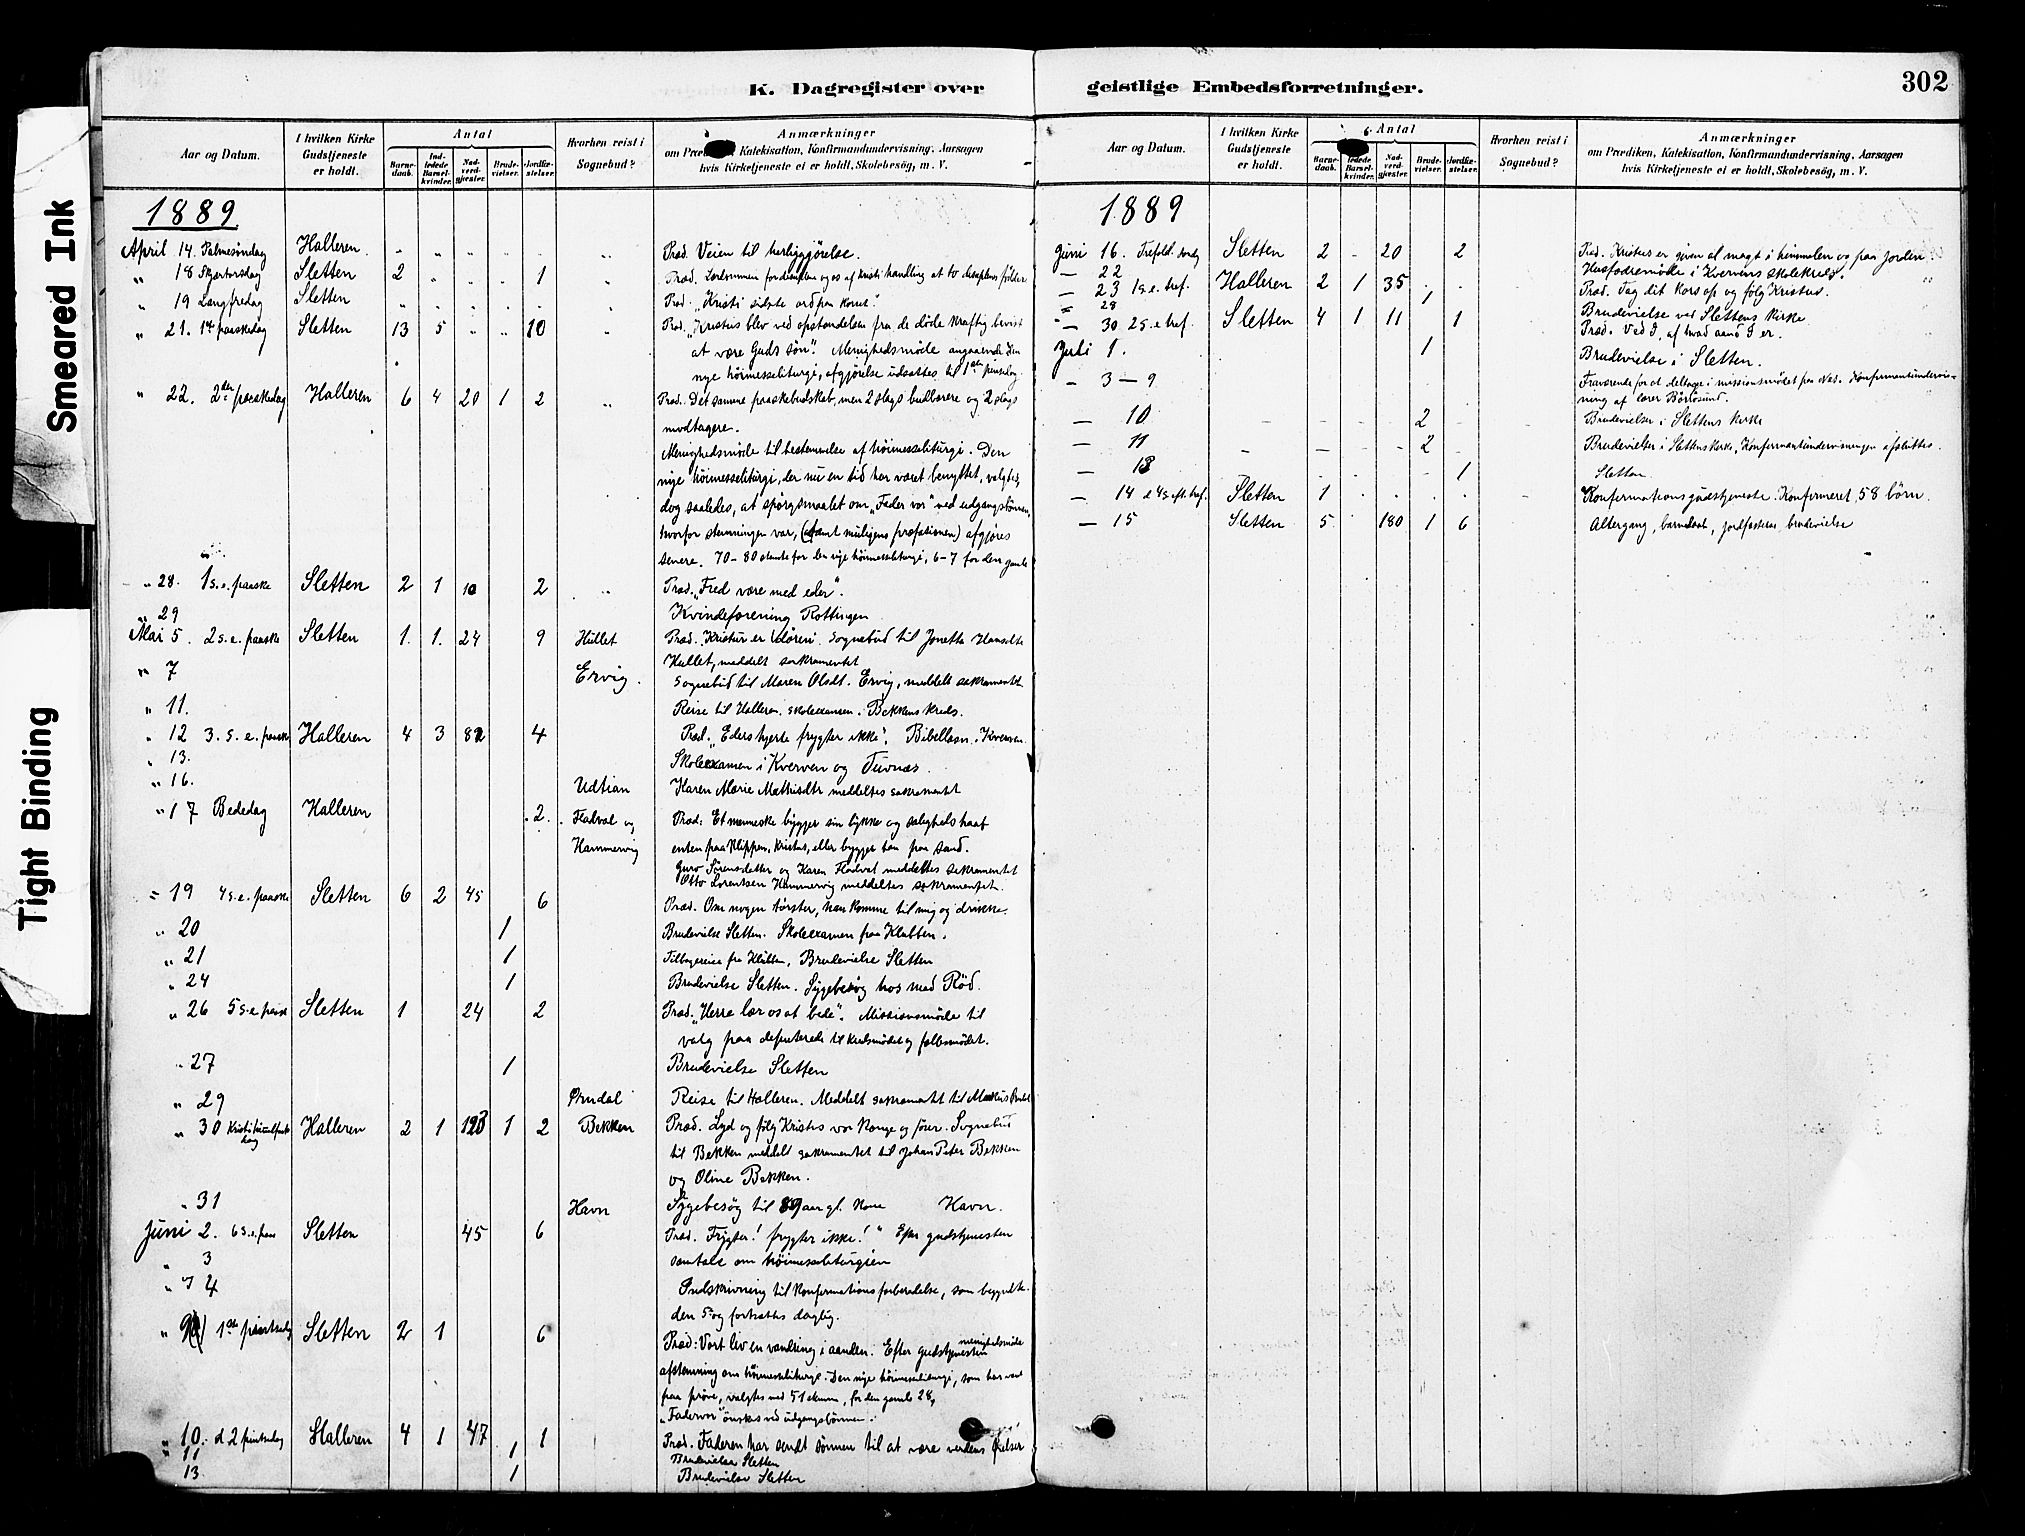 Smeared Ink
Tight Binding
K. Dagregister over
Aar og Datum.
I hvilken Kirke Gudstjeneste er holdt.
Antal
Barne-daab.
Ind-ledede Barsel-kvinder.
Nad-verd-gjæster.
Brude-vielser.
Jordfæ-stelser.
Hvorhen reist i Sognebud?
Anmærkninger
om Præ Katekisation, Konfirmandundervisning, Aarsagen
hvis Kirketjeneste ei er holdt, Skolebesög, m. V.
1889
April 14. Palmesøndag Halleren Præd. Veien til herliggjørelse.
" 18 Skjærtorsdag Sletten 2 1
" 19 Langfredag Sletten Præd. "Kristi sidste ord paa korset."
" 21. 1ste paaskedag Sletten 13 5 10 Præd. "Kristus blev ved opstandelsen fra de døde kraftig bevist
at være Guds søn". Menighedsmøde angaaende den
nye høimesseliturgi, afgjørelse udsattes til 1ste pinsedag
" 22. 2den paaskedag Halleren 6 4 20 1 2 Præd. Det samme paaskebudskab, men 2 slags budbærere og 2 slags
modtagere.
Menighedsmøde til bestemmelse af høimesseliturgi. Den
nye høimesseliturgi, der nu en tid har været benyttet, valgtes,
dog saaledes, at spørgsmaalet om "Fader vor" ved udgangsbønnen,
hvorfor stemningen var, (samt muligens præfationen) afgjøres
senere. 70-80 stemte for den nye høimesseliturgi, 6-7 for den gamle
" 28. 1 s. e. paaske Sletten 2 1 10 2 Præd. "Fred være med eder".
" 29 Kvindeforening Rottingen
Mai 5. 2 s. e. paaske Sletten 1. 1. 24 9 Hullet Præd. Kristus er døren. Sognebud til Jonetta Hansdtr
Hullet, meddelt sakramentet
" 7 Ervig. Sognebud til Maren Olsdt. Ervig, meddelt sakramentet
" 11. Reise til Halleren. Skoleexamen. Bekkens kreds.
" 12 3. s. e. paaske Halleren 4 3 82 4 Præd. "Eders hjerte frygter ikke". Bibellæsn. Kverven
" 13. Skoleexamen i Kverven og Tuvnæs.
" 16. Udtian Karen Marie Mathisdtr meddeltes sakramentet
" 17 Bededag Halleren 2. Fladval og Præd: Et menneske bygger sin lykke og saligheds haab
Hammervig enten paa klippen, Kristus, eller bygger han paa sand.
Guro Sørensdatter og Karen Fladval meddeltes sakramentet
Otto Lorentsen Hammervig meddeltes sakramentet.
" 19 4 s. e. paaske Sletten 6 2 45 6 Præd. Om nogen tørster, han komme til mig og drikke.
" 20 1 Brudevielse Sletten. Skoleexamen paa Klubben.
" 21 1 Tilbagereise fra Klubben, Brudevielse Sletten
" 24 1 Brudevielse Sletten. Sygebesøg hos mad Rød.
" 26 5 s. e. paask Sletten 1 24 2 Præd. "Herre lær os at bede". Missionsmøde til
valg paa deputerede til kredsmødet og fællesmødet.
" 27 1 Brudevielse Sletten
" 29 Ørndal Reise til Halleren. Meddelt sakramentet til
" 30 Kristi himmelfarts dag Halleren 2 1 123 1 2 Bekken Præd. Lyd og følg Kristus vor konge og fører. Sognebud
til Bekken meddelt sakramentet til Johan Peter Bekken
og Oline Bekken.
" 31 Havn Sygebesøg til 89 aar gl. Kone Havn.
Juni 2. 6 s. e. paas Sletten 45 6 Præd. Frygter! frygter ikke!" Efter gudstjenesten
" 3 samtale om høimesseliturgien
" 4 Indskrivning til Konfirmationsforberedelse, som begyndte
den 5. og fortsattes daglig.
" 9 1ste pintsedag Sletten 2 1 6 Præd: Vort liv en vandring i aanden. Efter gudstjenesten menighedsmøde
afstemning om høimesseliturgi. Den nye høimesseliturgi, som har været
paa prøve, valgtes med 51 stemm, for den gamle 28,
"Fadervor" ønskes ved udgangsbønnen.
" 10. d 2 pintsedag Halleren 4 1 47 1 Præd. Faderen har sendt sønnen til at være verdens frelser
" 11 1 Brudevielse Sletten
" 13 1 Brudevielse Sletten
geistlige Embedsforretninger.
302
Aar og Datum.
I hvilken Kirke Gudstjeneste er holdt.
Antal
Barne-daab.
ledede Barsel-kvinder.
Nad-verd-gjæster.
Brude-vielser.
Jordfæ-stelser.
Hvorhen reist i Sognebud?
Anmærkninger
om Prædiken, Katekisation, Konfirmandundervisning, Aarsagen
hvis Kirketjeneste ei er holdt, Skolebesög, m. V.
1889
Juni 16. Trefold. søndg Sletten 2 20 2 Præd. Kristus er given al magt i himmelen og paa jorden
— 22 Husfædremøde i Kvervens skolekreds.
— 23 1 s. e. tref. Halleren 2 1 35 Præd. Tag dit kors op og følg Kristus.
— 28 1 Brudevielse ved Slettens kirke
— 30 2 s. e tref. Sletten 4 1 11 1 Præd. Ved I, af hvad aand I er.
Juli 1. 1 Brudevielse i Sletten.
— 3 — 9 Fraværende for at deltage i missionsmødet paa Konfirmantundervis-
ning af lærer Börösund.
— 10 2 Brudevielse i Slettens kirke
— 11 2 Brudevielse i Slettens kirke, Konfirmantundervisningen afsluttes
— 13 1 Sletten
— 14 d 4 s. eft. tref. Sletten 1 Konfirmationsgudstjeneste. Konfirmeret 58 børn.
— 15 Sletten 5 180 1 6 Altergang, barnedaab, jordfæstelse, brudevielse